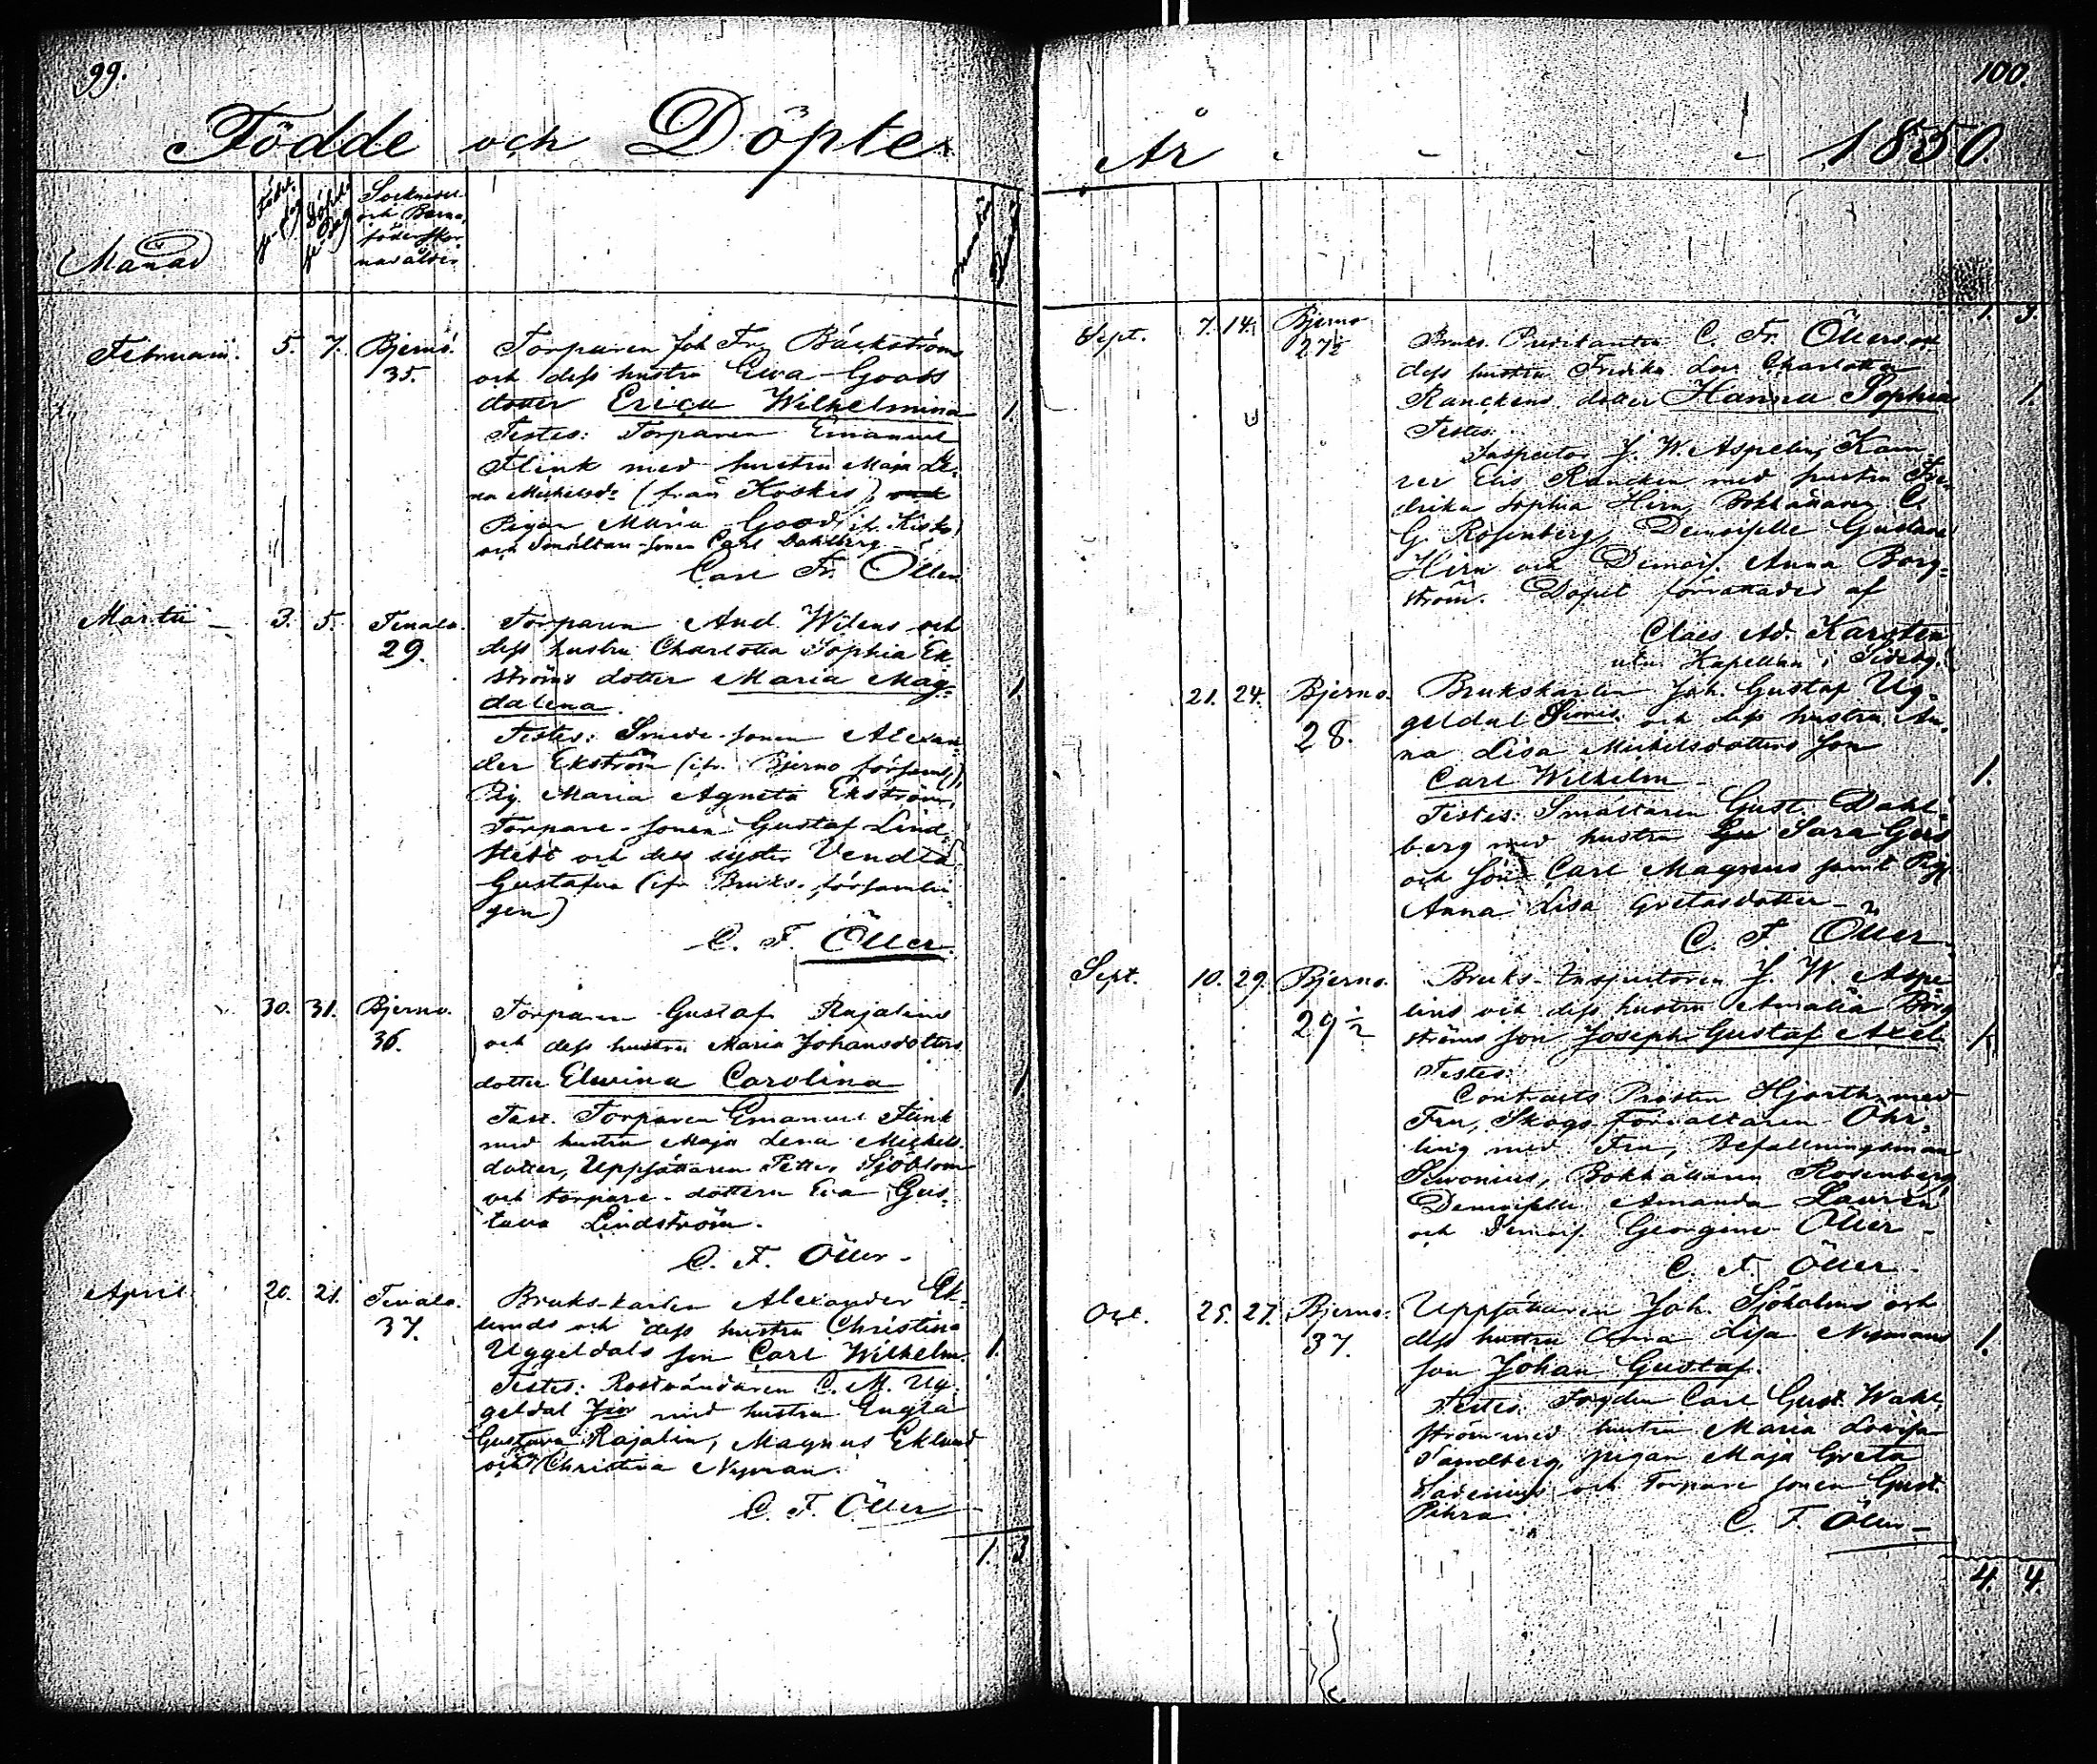 99.
Födde och Döpte
Månad
Födel-se-dag
Döpel-se-dag
Socknedel
och Barna
föderskor-
nas ålder
Februarii. 5. 7. Bjerno. Torparen Joh Fr. Bäckströms
35. och dess hustru Ewa Goods
dotter Erica Wilhelmina 1.
Testes: Torparen Emanuel
Flink med hustru Maja Le-
na Michelsd. (från Koskis), och
Pigan Maria Good, it. Kisko,
och Smältare-sonen Carl Dahlberg
Carl Fr. Öller
Martii 3. 5. Tenala. Torparen And. Wilens och
29. dess hustru Charlotta Sophia Ek
ströms dotter Maria Mag- 1.
dalena.
Testes: Smeds-sonen Alexan-
der Ekström (ifr. Bjerno församl.)
Pig. Maria Agneta Ekström,
Torpare-sonen Gustaf Lind-
stedt och dess syster Vendla
Gustafva (ifr Bruks-församlin
gen)
C. F. Öller.
30. 31. Bjerno. Torparen Gustaf Rajalins
36. och dess hustru Maria Johansdotters
dotter Elwina Carolina 1
Test. Torparen Emanuel Flink
med hustru Maja Lena Michels
dotter, Uppsättaren Petter Sjöblom
och torpare-dottern Eva Gus-
tava Lindström.
C. F. Öller
April 20. 21. Tenala. Bruks-karlen Alexander Ek-
37. lunds och dess hustru Christina
Uggeldals son Carl Wilhelm. 1.
Testes: Rostvändaren C. M. Ug-
geldal med hustru Engla
Gustava Rajalin, Magnus Eklund
och Christina Nyman.
C. F. Öller
1. 3
100.
År 1850.
1. 3.
Sept. 7. 14. Bjerno Bruks-Predikanten C. Fr. Öllers och
27½ dess hustru Fredika Lov. Charlotta
Ranckens dotter Hanna Sophia 1.
Testes:
Inspector J. W. Aspelin, Kam-
rer Elis Rancken med hustru Fre-
drika Sophia Hirn, Bokhållaren C.
G. Rosenberg, Demoiselle Gustava
Hirn och Demois. Anna Borg-
ström. Dopet förrättades af
Claes Ad. Karsten
Kapellan i Sideby.
21. 24. Bjerno. Brukskarlen Joh. Gustaf Ug-
28. geldal och dess hustru An-
na Lisa Michelsdotters son
Carl Wilhelm 1.
Testes: Smältaren Gust. Dahl-
berg med hustru Sara Gers
och son Carl Magnus samt Pig.
Anna Lisa Gretasdotter
C. F. Öller
Sept. 10. 29. Bjerno. Bruks-Inspectoren J. W. Aspe
29½ lins och dess hustru Amalia Borg
ströms son Joseph Gustaf Axel 1.
Testes:
Contracts Prosten Hjorth med
Fru, Skogs-Förvaltaren Öhr-
ling med Fru, Befallningsman
Bokhållaren Rosenberg,
Demoiselle Amanda Laurén
och Demois. Georgine Öller
C. F. Öller
Oct. 25. 27. Bjerno. Uppsättaren Joh. Sjöholms och
37. dess hustru Anna Lisa Nymans 1.
son Johan Gustaf.
Testes: Fogden Carl Gust. Wahl-
ström med hustru Maria Lovisa
Sandberg, pigan Maja Greta
och Torpare sonen Gust.
Pihra
C. F. Öller
4. 4.